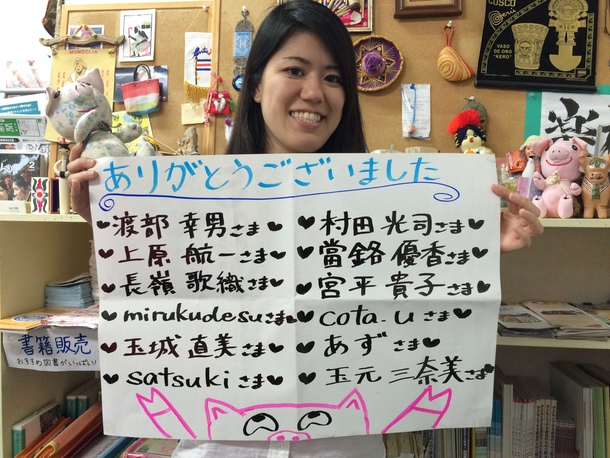 MONGOLIA
CUSCO
VASO
DE ORO
"KERO"
ありがとうございました
♥渡部 幸男さま♥ ♥村田 光司さま♥
♥上原 航一さま♥ ♥當銘 優香さま♥
♥長嶺 歌織さま♥ ♥宮平 貴子さま♥
♥mirukudesuさま♥ ♥cota.uさま♥
♥玉城 直美さま♥ ♥あずさま♥
♥satsukiさま♥ ♥玉元 三奈美さま
書籍販売
おすすめ図書がいっぱい!